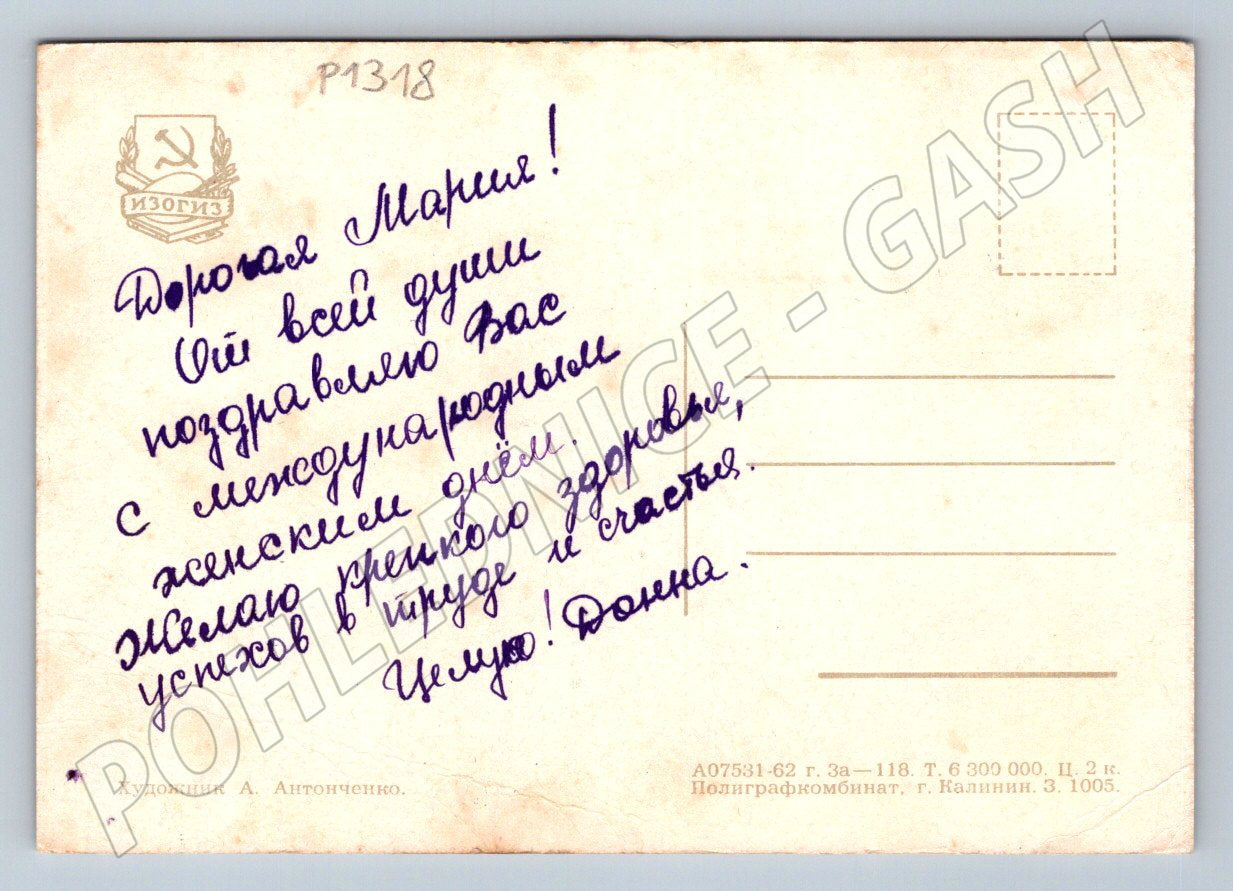 P1318
ИЗОГИЗ
Дорогая Мария!
От всей души
поздравляю Вас
с международным
женским днём.
Желаю крепкого здоровья,
успехов в труде и счастья.
Целую! Донна.
Художник А. Антонченко.
А07531-62 г. За—118. Т. 6 300 000. Ц. 2 к.
Полиграфкомбинат, г. Калинин. З. 1005.
POHLEDNICE - GASH